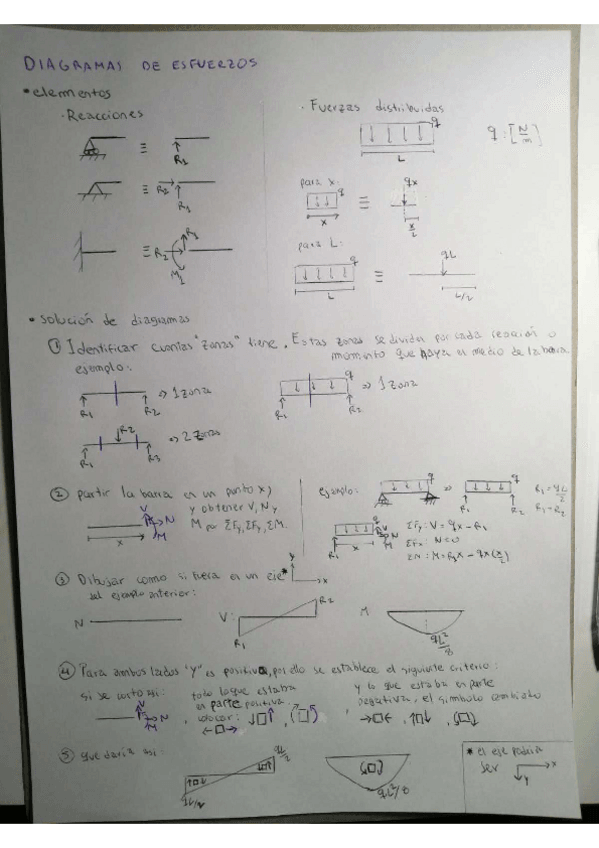 DIAGRAMAS DE ESFUERZOS
• elementos
· Reacciones
· Fuerzas distribuidas
≡ R1
q
L
q : [N/m]
≡ R2 R1
para x:
q
x
≡
qx
x/2
≡ R2 R1 M1
para L:
q
L
≡
qL
L/2
• solución de diagramas
① Identificar cuantas "zonas" tiene. Estas zonas se dividen por cada reacción o
momento que haya en medio de la barra
ejemplo:
R1 R2 ⇒ 1 zona
q R1 R2 ⇒ 1 zona
R1 R2 R3 ⇒ 2 zonas
② partir la barra en un punto x,
y obtener V, N y
M por ΣFy, ΣFx, ΣM.
V N M
x
ejemplo:
q ⇒ q
R1 R2
R1 = qL/2
R1 = R2
q V N M
R1 x
ΣFy: V = qx - R1
ΣFx: N = 0
ΣM: M = R1x - qx(x/2)
③ Dibujar como si fuera en un eje* y x
del ejemplo anterior:
N
V: R1 R2
M qL²/8
④ Para ambos lados "y" es positiva, por ello se establece el siguiente criterio:
si se corto asi:
V N M
todo lo que estaba
en parte positiva,
colocar:
y lo que estaba en parte
negativa, el simbolo cambiado
⑤ quedaria asi:
qL/2
qL/2
qL²/8
* el eje podria
ser x y